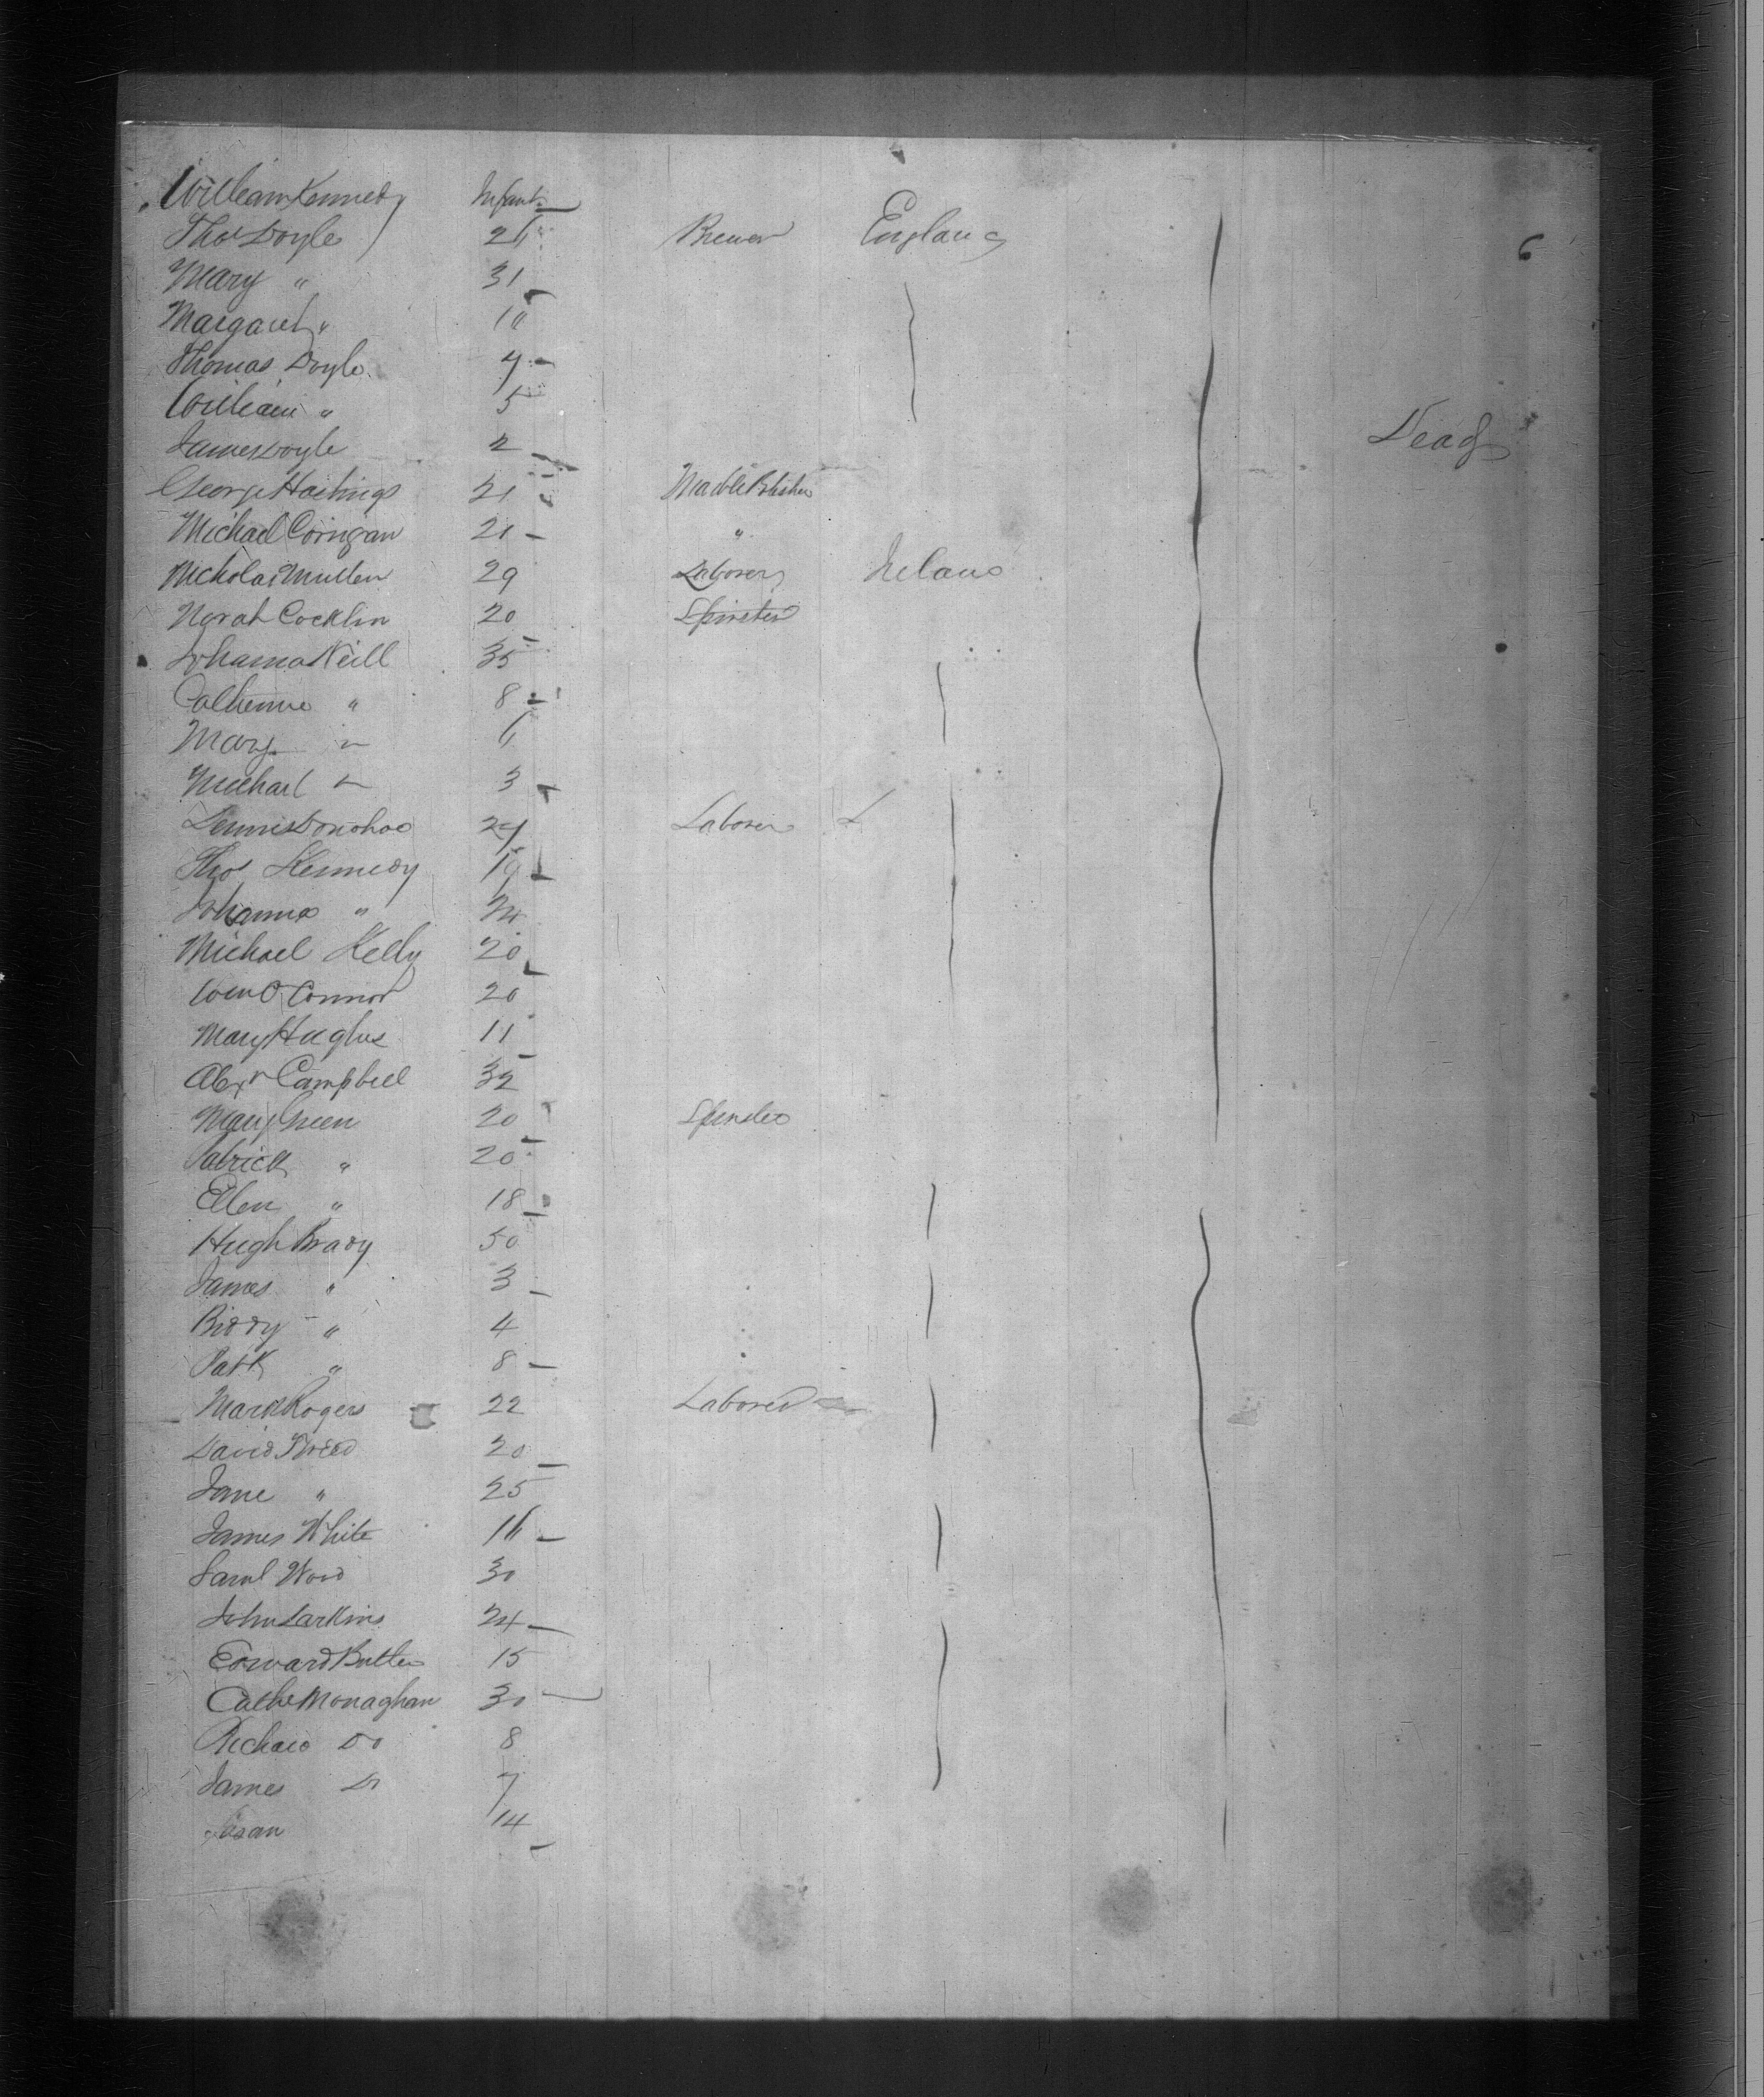 William Kennedy Infant
Thos Doyle 26 Brewer England 6
Mary " 31
Margaret "
Thomas Doyle
William " 5
James Doyle 2 Dead
George Hastings 21 Marble Polisher
Michael Corrigan 21 "
Nicholas Mullen 29 Laborer Ireland
Norah Cocklin 20 Spinster
Johanna Neill 35
Catherine " 8
Mary " 6
Michael " 3
Dennis Donohoe Laborer
Thos Kennedy 19
Johanna " 24
Michael Kelly 20
Wm O'Connor 20
Mary Hughes 11
Alexr Campbell 32
Mary Green 20 Spinster
Patrick " 20
Ellen " 18
Hugh Brady 50
James " 3
Biddy " 4
Patk " 8
Mark Rogers 22 Laborer
David 20
Jane " 25
James White 16
Saml Wood 30
John Larkins 24
Edward Butler 15
Cathe Monaghan 30
Richard Do 8
James Do 7
Susan 14